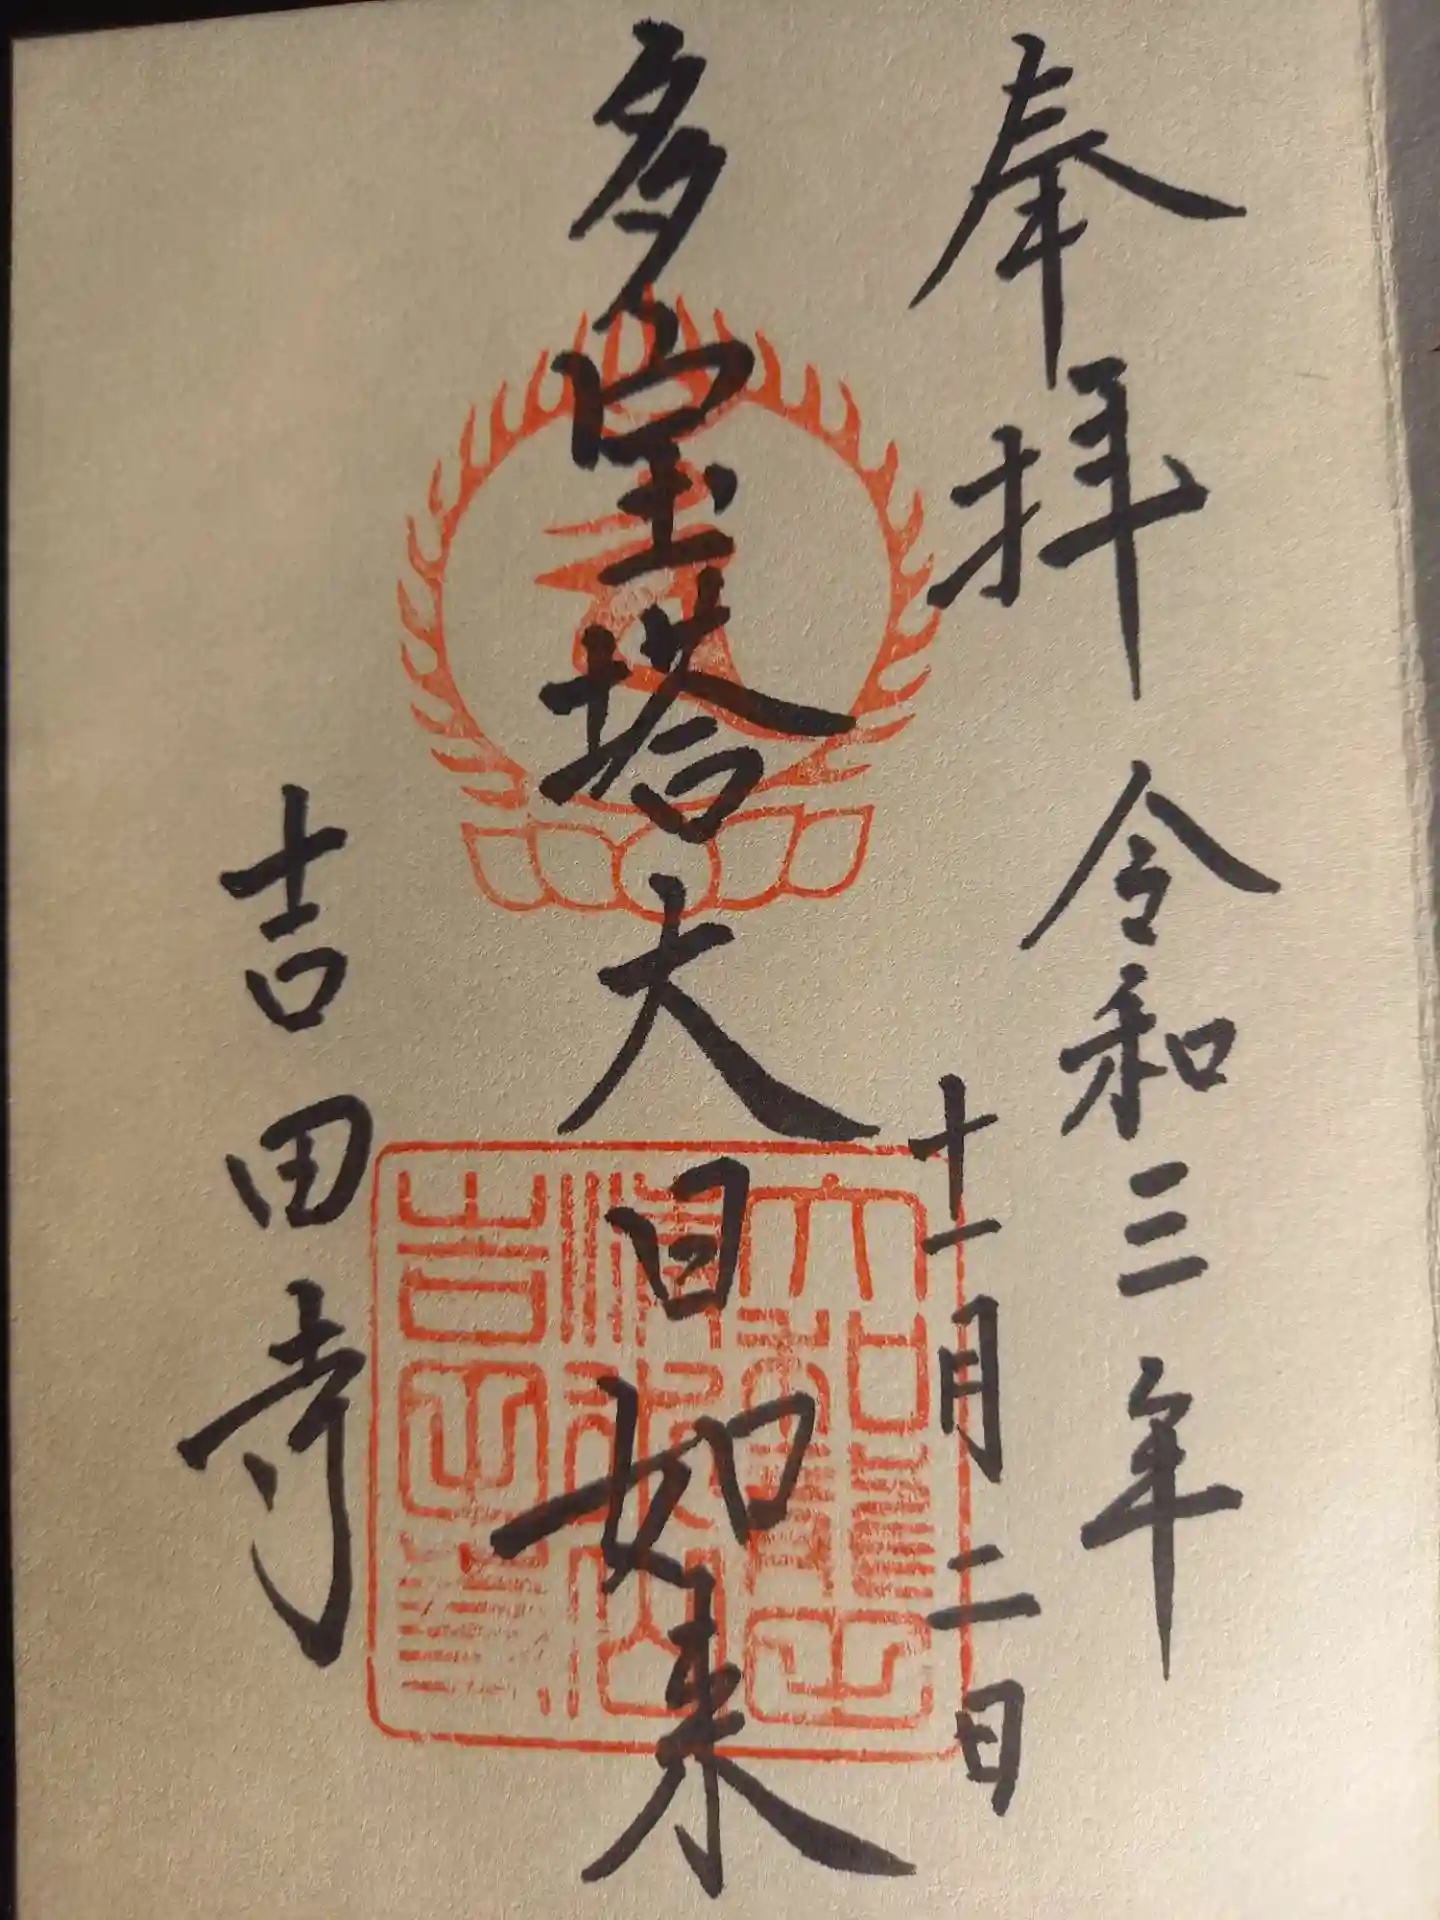 奉拝
令和三年
十一月二日
多宝塔大日如来
吉田寺